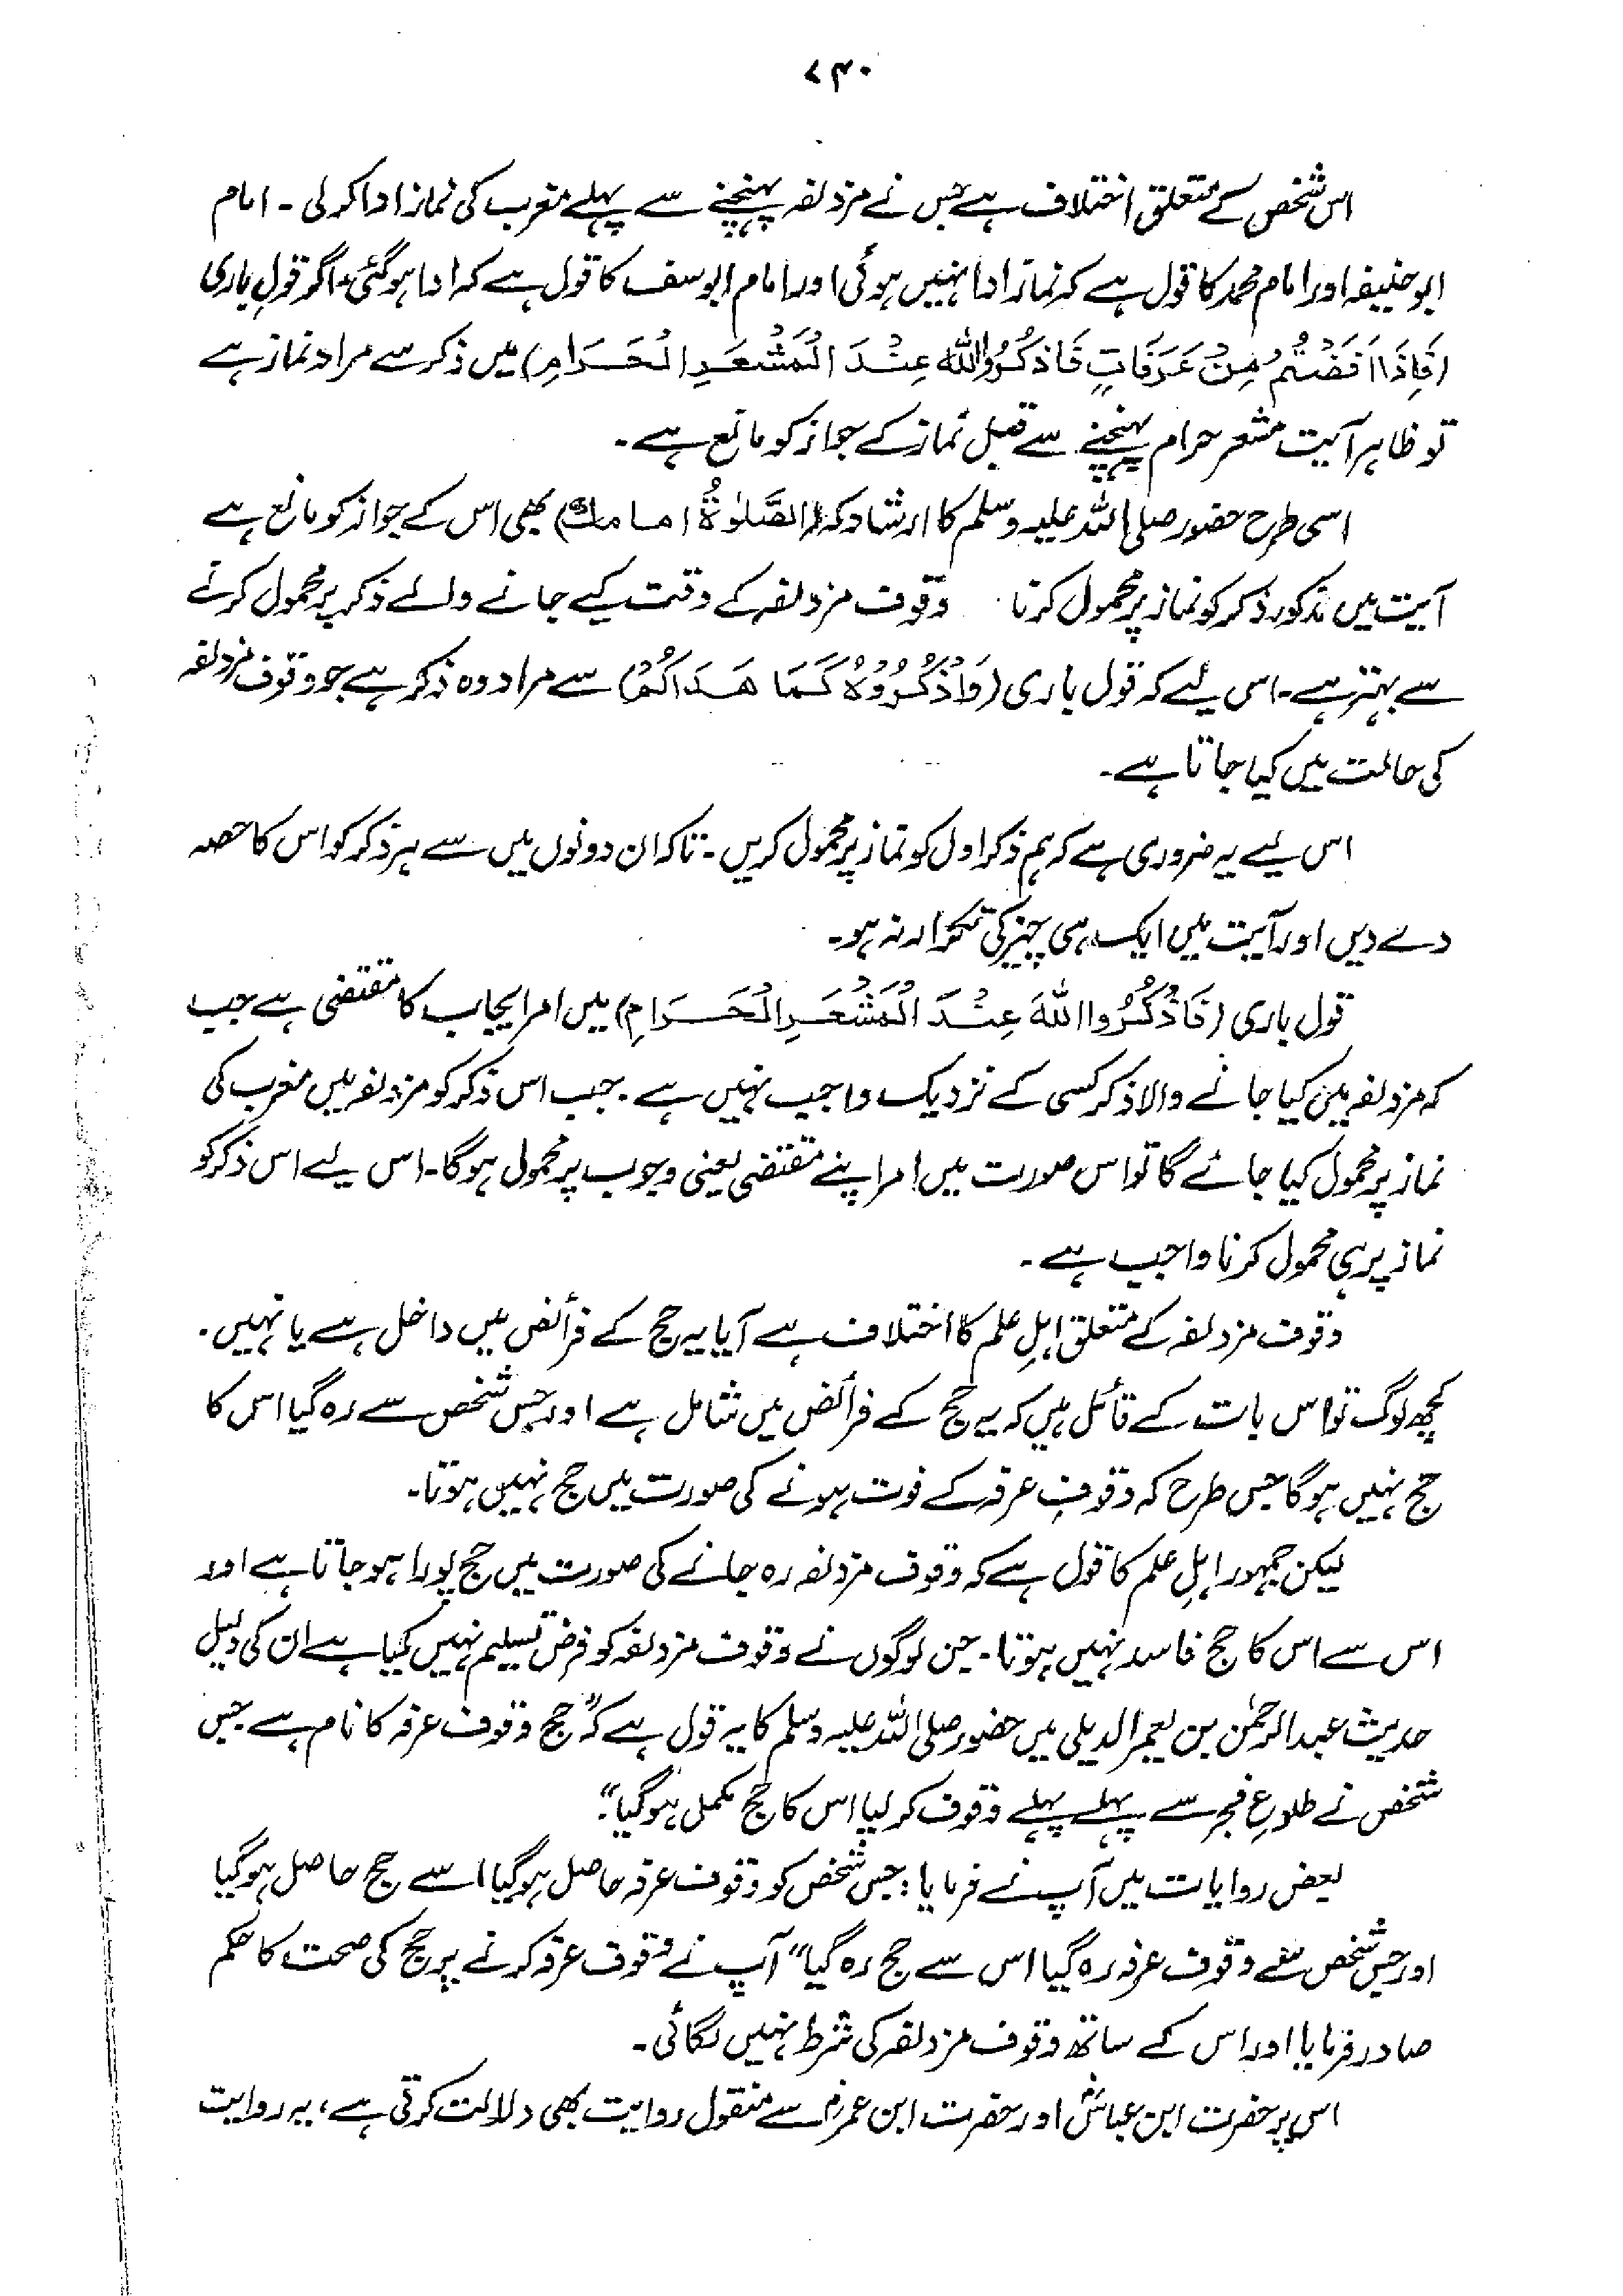 ۷۴۰
اس شخص کے متعلق اختلاف ہے جس نے مزدلفہ پہنچنے سے پہلے مغرب کی نماز ادا کر لی ۔ امام
ابو حنیفہ اور امام محمد کا قول ہے کہ نماز ادا نہیں ہوئی اور امام ابو سف کا قول ہے کہ ادا ہو گئی، اگر قولِ باری
(فَاِذَا اَفَضْتُمْ مِنْ عَرَفَاتٍ فَاذْكُرُوا اللّٰهَ عِنْدَ الْمَشْعَرِ الْحَرَامِ) میں ذکر سے مراد نماز ہے
تو ظاہر آیت مشعر حرام پہنچنے سے قبل نماز کے جواز کو مانع ہے ۔
اسی طرح حضور صلی اللہ علیہ وسلم کا ارشاد کہ (الصَّلٰوةُ امامك) بھی اس کے جواز کو مانع ہے
آیت میں مذکور ذکر کو نماز پر محمول کرنا وقوف مزدلفہ کے وقت کیے جانے والے ذکر پر محمول کرنے
سے بہتر ہے ۔ اس لیے کہ قول باری (وَاذْكُرُوْهُ كَمَا هَدَاكُمْ) سے مراد وہ ذکر ہے جو وقوف مزدلفہ
کی حالت میں کیا جاتا ہے ۔
اس لیے یہ ضروری ہے کہ ہم ذکر اول کو نماز پر محمول کریں ۔ تاکہ ان دونوں میں سے ہر ذکر کو اس کا حصہ
دے دیں اور آیت میں ایک ہی چیز کی تکرار نہ ہو ۔
قول باری (فَاذْكُرُوا اللّٰهَ عِنْدَ الْمَشْعَرِ الْحَرَامِ) میں امر ایجاب کا مقتضی ہے جب
کہ مزدلفہ میں کیا جانے والا ذکر کسی کے نزدیک واجب نہیں ہے ۔ جب اس ذکر کو مزدلفہ میں مغرب کی
نماز پر محمول کیا جائے گا تو اس صورت میں امر اپنے مقتضی یعنی وجوب پر محمول ہوگا ۔ اس لیے اس ذکر کو
نماز پر ہی محمول کرنا واجب ہے ۔
وقوف مزدلفہ کے متعلق اہلِ علم کا اختلاف ہے آیا یہ حج کے فرائض میں داخل ہے یا نہیں ۔
کچھ لوگ تو اس بات کے قائل ہیں کہ یہ حج کے فرائض میں شامل ہے اور جس شخص سے رہ گیا اس کا
حج نہیں ہوگا جس طرح کہ وقوفِ عرفہ کے فوت ہونے کی صورت میں حج نہیں ہوتا ۔
لیکن جمہور اہلِ علم کا قول ہے کہ وقوف مزدلفہ رہ جانے کی صورت میں حج پورا ہو جاتا ہے اور
اس سے اس کا حج فاسد نہیں ہوتا ۔ جن لوگوں نے وقوف مزدلفہ کو فرض تسلیم نہیں کیا ہے ان کی دلیل
حدیث عبدالرحمٰن بن یعمر الدیلی میں حضور صلی اللہ علیہ وسلم کا یہ قول ہے کہ "حج وقوف عرفہ کا نام ہے جس
شخص نے طلوعِ فجر سے پہلے پہلے وقوف کر لیا اس کا حج مکمل ہو گیا"۔
بعض روایات میں آپ نے فرمایا : جس شخص کو وقوف عرفہ حاصل ہو گیا اسے حج حاصل ہو گیا
اور جس شخص سے وقوف عرفہ رہ گیا اس سے حج رہ گیا" آپ نے وقوف عرفہ کرنے پر حج کی صحت کا حکم
صادر فرمایا اور اس کے ساتھ وقوف مزدلفہ کی شرط نہیں لگائی ۔
اس پر حضرت ابن عباسؓ اور حضرت ابن عمرؓ سے منقول روایت بھی دلالت کرتی ہے ، یہ روایت